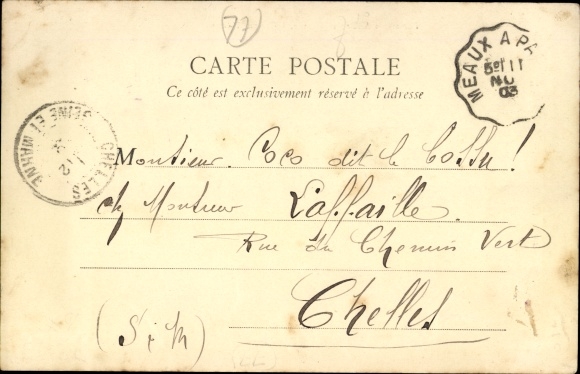 (77)
MEAUX A PA
5E 11
NO
03
CARTE POSTALE
Ce côté est exclusivement réservé à l'adresse
CHELLES
SEINE ET MARNE
12
Monsieur Coco dit le Cossu!
ch Monsieur Laffaille.
Rue du Chemin Vert
Chelles
(S & M)